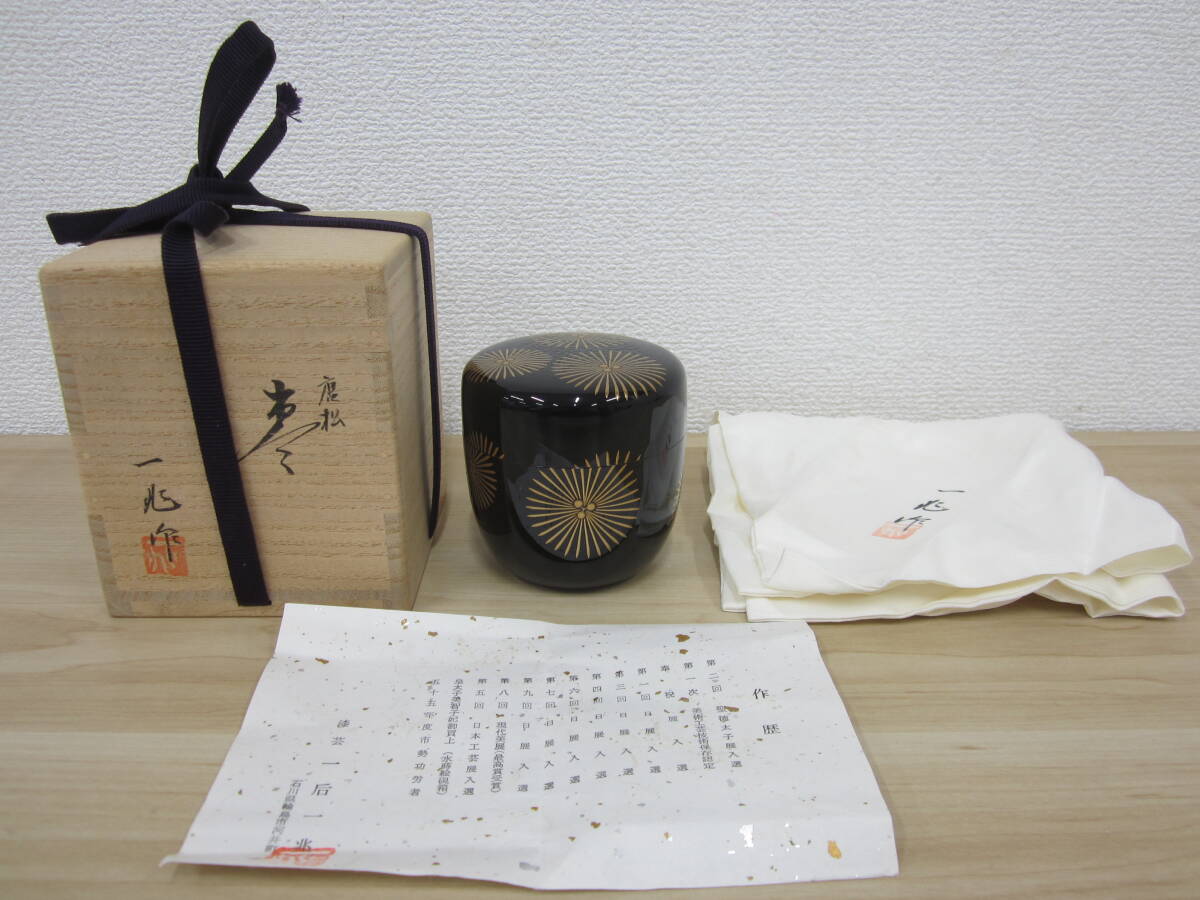 唐松
棗
一兆作
一兆作
作歴
第二回 聖徳太子展入選
第一次 美術工芸技術保存認定
奉祝展入選
第一回日展入選
第三回日展入選
第四回日展入選
第六回日展入選
第七回日展入選
第九回日展入選
第八回 現代美展(最高賞受賞)
第五回 日本工芸展入選
皇太子美智子妃御買上(水蒔絵硯箱)
五十五年度市勢功労者
漆芸 一后一兆
石川県輪島市河井町